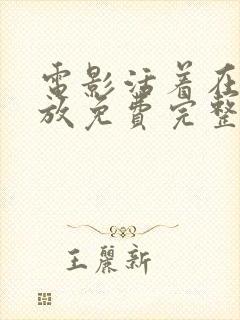 電影活着在
放免費完整
王麗新